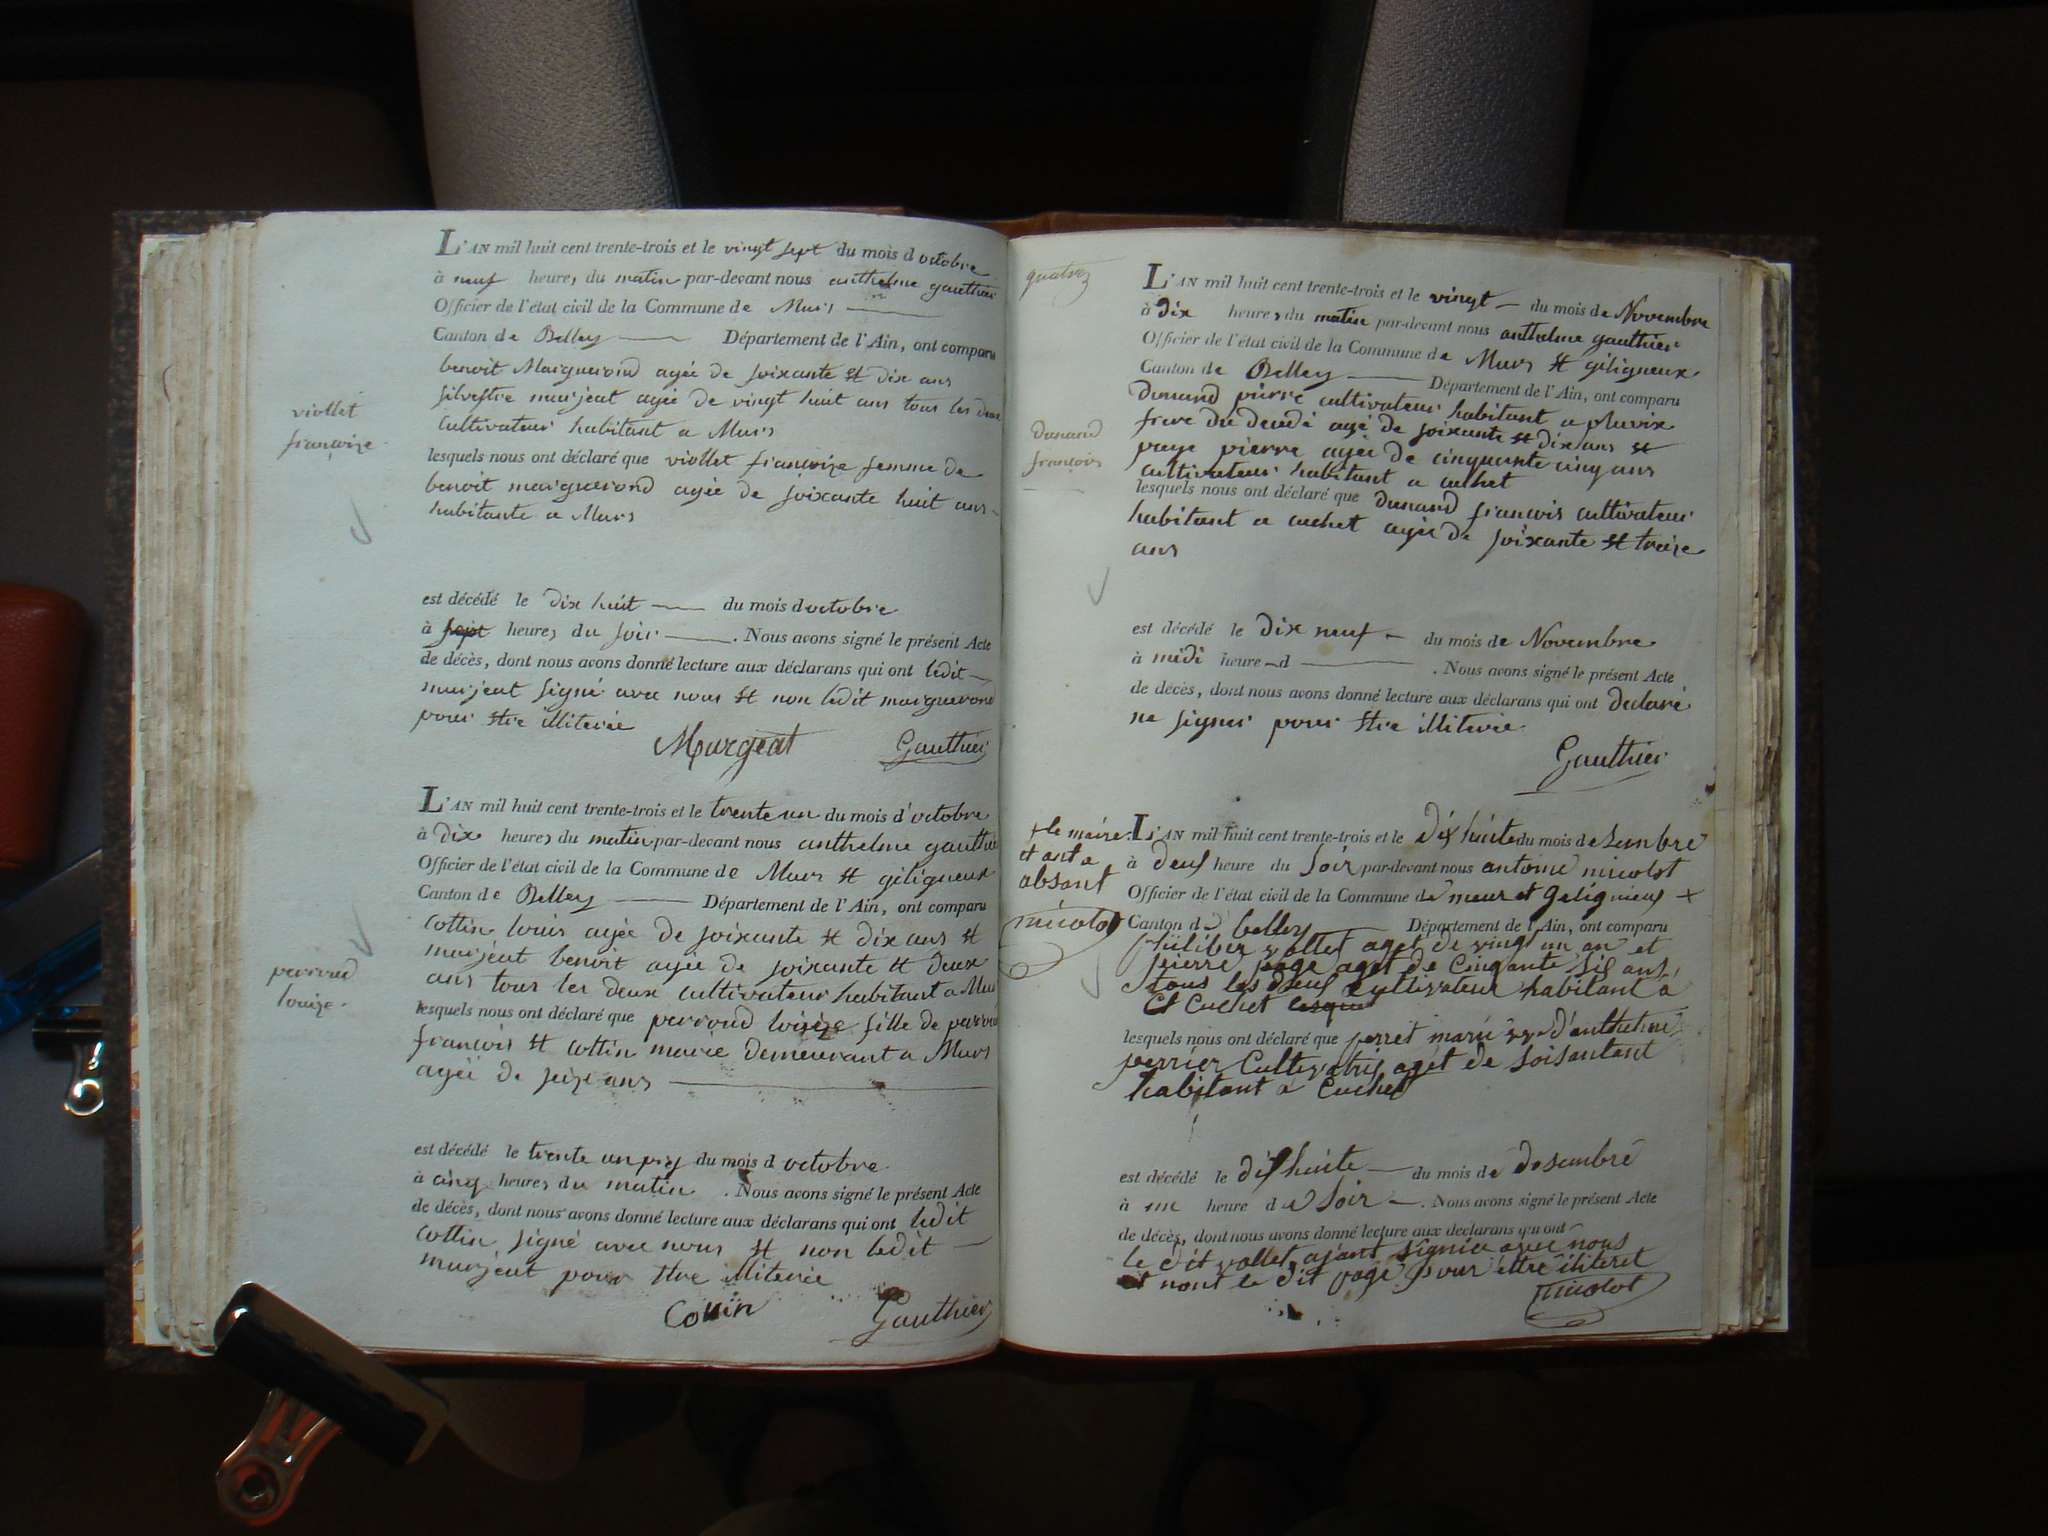 L'AN mil huit cent trente-trois et le vingt sept du mois d octobre
à neuf heures du matin par-devant nous anthelme gauthier
Officier de l'état civil de la Commune de Murs
Canton de Belley Département de l'Ain, ont comparu
benoit Maiguerond agée de soixante et dix ans
silvestre murjeat agée de vingt huit ans tous les deux
cultivateur habitant a Murs
viollet
françoize
lesquels nous ont déclaré que viollet françoize femme de
benoit maiguerond agée de soixante huit ans
habitante a Murs
est décédé le dix huit du mois d octobre
à sept heures du soir . Nous avons signé le présent Acte
de décès, dont nous avons donné lecture aux déclarans qui ont ledit
murjeat signé avec nous et non ledit maiguerond
pour etre illiterée
Murgeat Gauthier
L'AN mil huit cent trente-trois et le trente un du mois d'octobre
à dix heures du matin par-devant nous anthelme gauthier
Officier de l'état civil de la Commune de Murs et géligneux
Canton de Belley Département de l'Ain, ont comparu
cottin louis agée de soixante et dix ans et
murjeat benoit agée de soixante et deux
ans tous les deux cultivateur habitant a Murs
perroud
louize
lesquels nous ont déclaré que perroud louize fille de perroud
francois et cottin marie demeurant a Murs
agée de seize ans
est décédé le trente un du mois d octobre
à cinq heures du matin . Nous avons signé le présent Acte
de décès, dont nous avons donné lecture aux déclarans qui ont ledit
cottin signé avec nous et non ledit
murjeat pour etre illiterée
Cottin Gauthier
L'AN mil huit cent trente-trois et le vingt du mois de Novembre
à dix heures du matin par-devant nous anthelme gauthier
Officier de l'état civil de la Commune de Murs et géligneux
Canton de Belley Département de l'Ain, ont comparu
dunand pierre cultivateur habitant a pluvix
frere du decedé agé de soixante et dix ans et
page pierre agée de cinquante cinq ans
cultivateur habitant a cuchet
dunand
françois
lesquels nous ont déclaré que dunand francois cultivateur
habitant a cuchet agée de soixante et treize
ans
est décédé le dix neuf du mois de Novembre
à midi heure d . Nous avons signé le présent Acte
de décès, dont nous avons donné lecture aux déclarans qui ont declaré
ne signer pour etre illiterée
Gauthier
+ le maire
et ant a
absant
micolot
L'AN mil huit cent trente-trois et le dix huite du mois desambre
à deux heure du soir par-devant nous antoine micolot
Officier de l'état civil de la Commune de meur et gelignieux +
Canton de belley Département de l'Ain, ont comparu
filiber vollet aget de vingt un an et
pierre page aget de cinqante six ans
tous les deux cultivateur habitant a
Cuchet lesquel
lesquels nous ont déclaré que perret marie d'anthelme
perrier Cultivatris aget de soisantant
habitant a Cuchet
est décédé le dix huite du mois de desambre
à une heure de soir . Nous avons signé le présent Acte
de décès, dont nous avons donné lecture aux déclarans qui ont
le dit vollet ajant signia avec nous
et nont le dit page pour ettre ilitéret
micolot